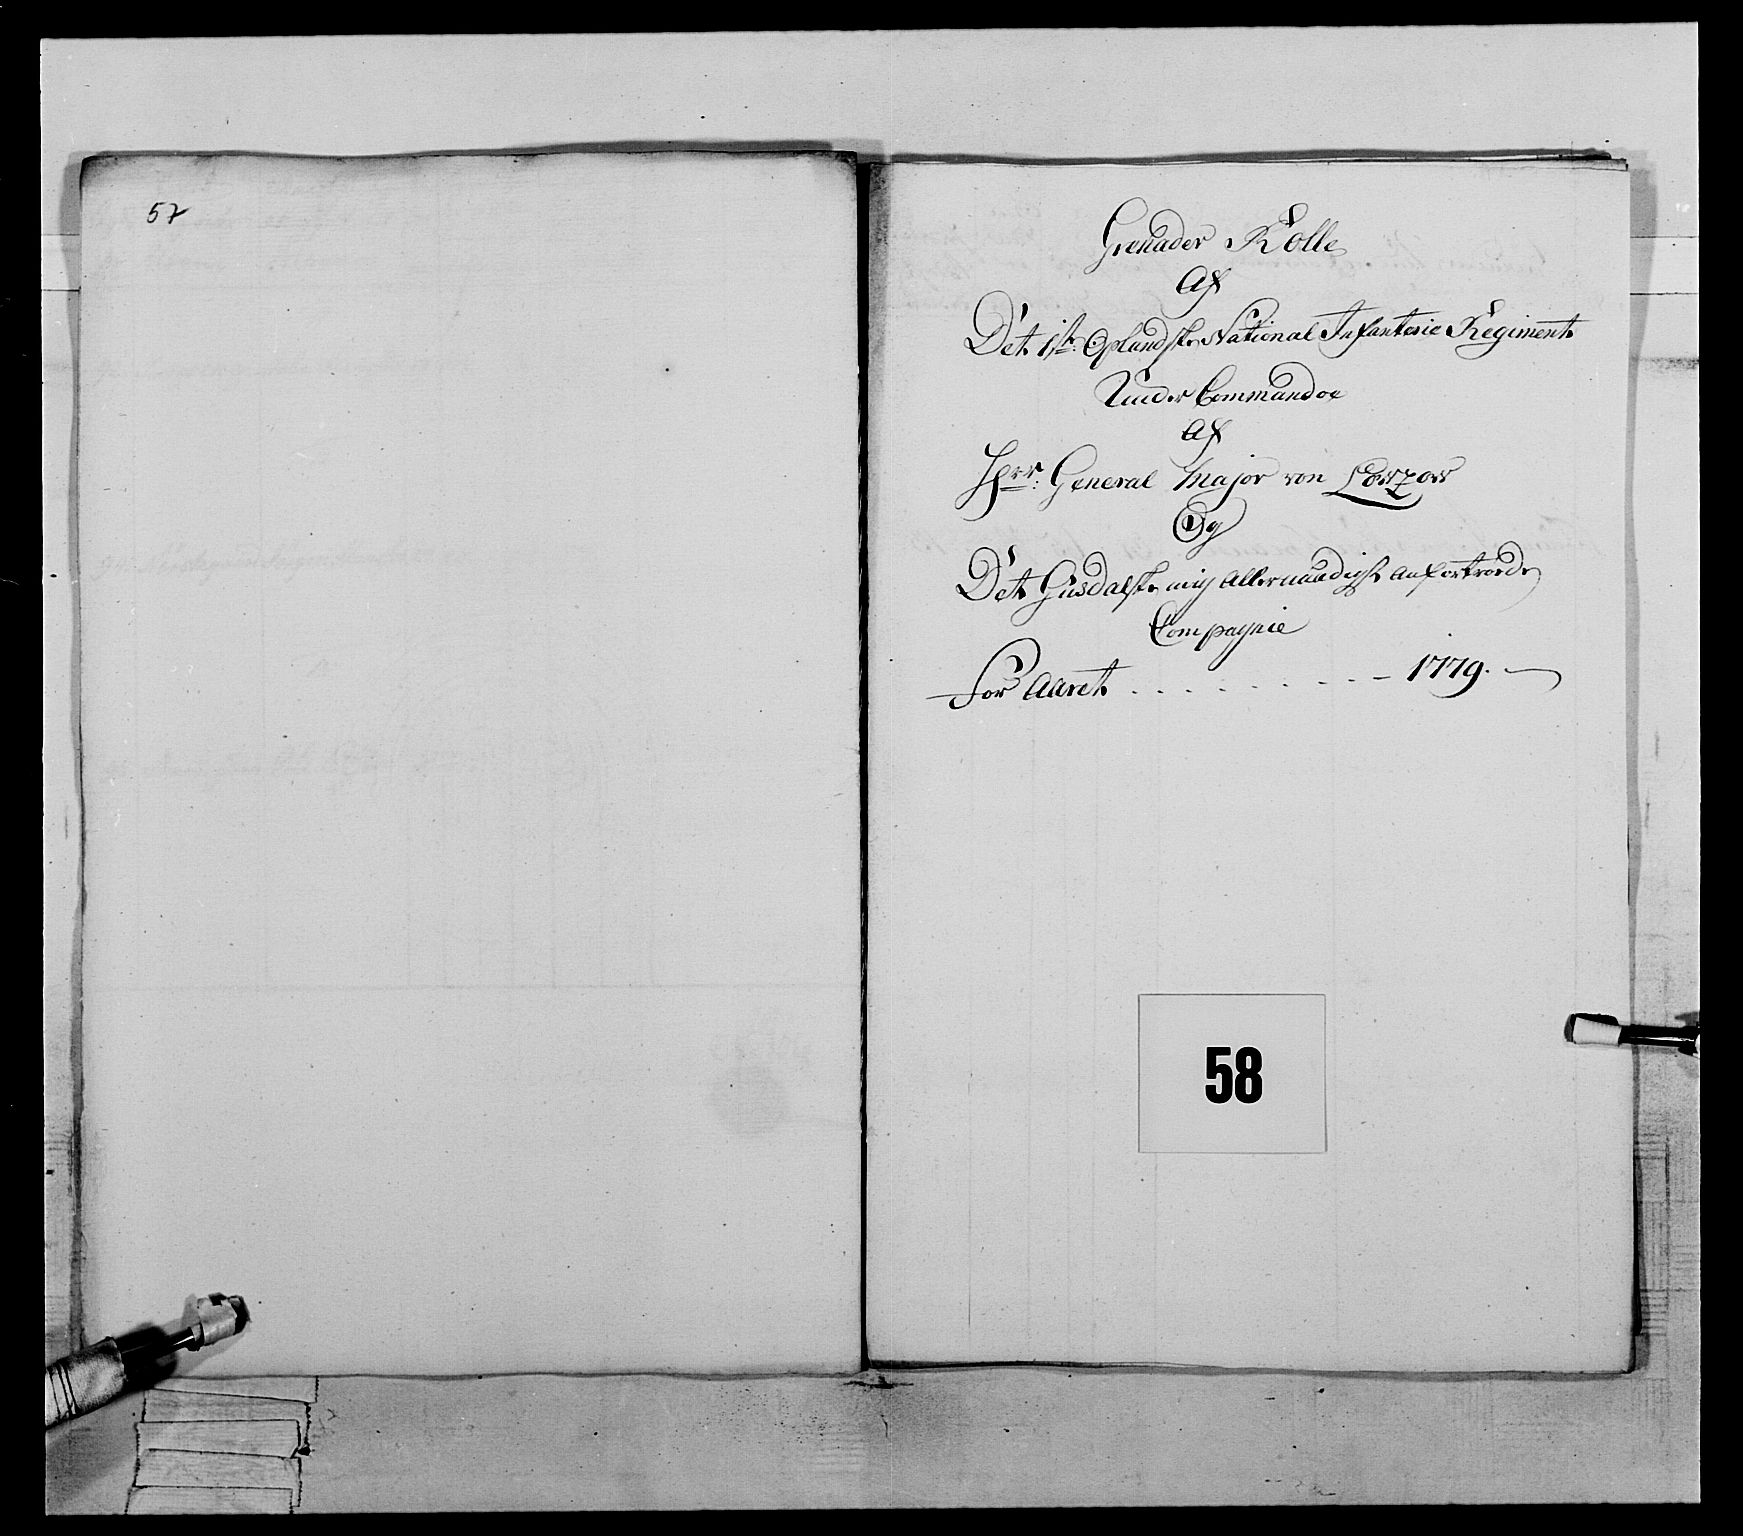 57
Grenader Rolle
Af
Det 1ste Oplandske National Infanterie Regiment
Under Commandoe
Af
Hrr: General Major von Lowzow
Og
Det Gusdalske mig allernaadigst anfortroede
Compagnie
For Aaret . . . . . . . . . 1779. —
58